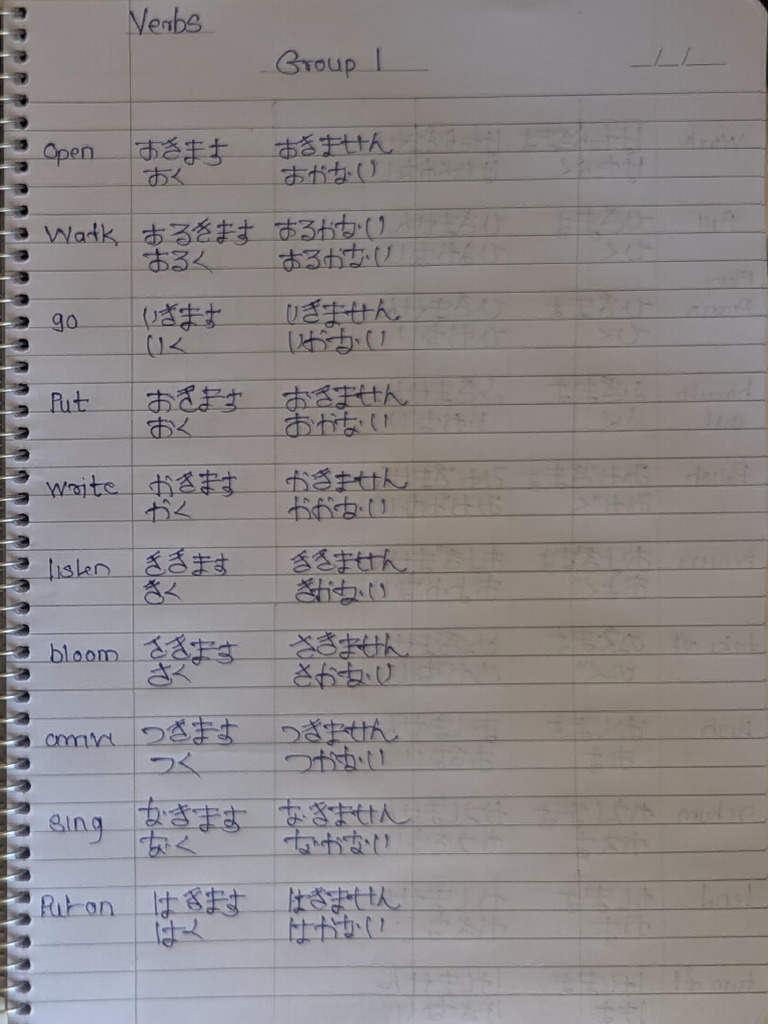 Verbs
Group 1
_/_/_
Open あきます あきません
あく あかない
Walk あるきます あるかない
あるく あるかない
go いきます いきません
いく いかない
Put おきます おきません
おく おかない
write かきます かきません
かく かかない
listen ききます ききません
きく きかない
bloom さきます さきません
さく さかない
arrive つきます つきません
つく つかない
sing なきます なきません
なく なかない
Put on はきます はきません
はく はかない